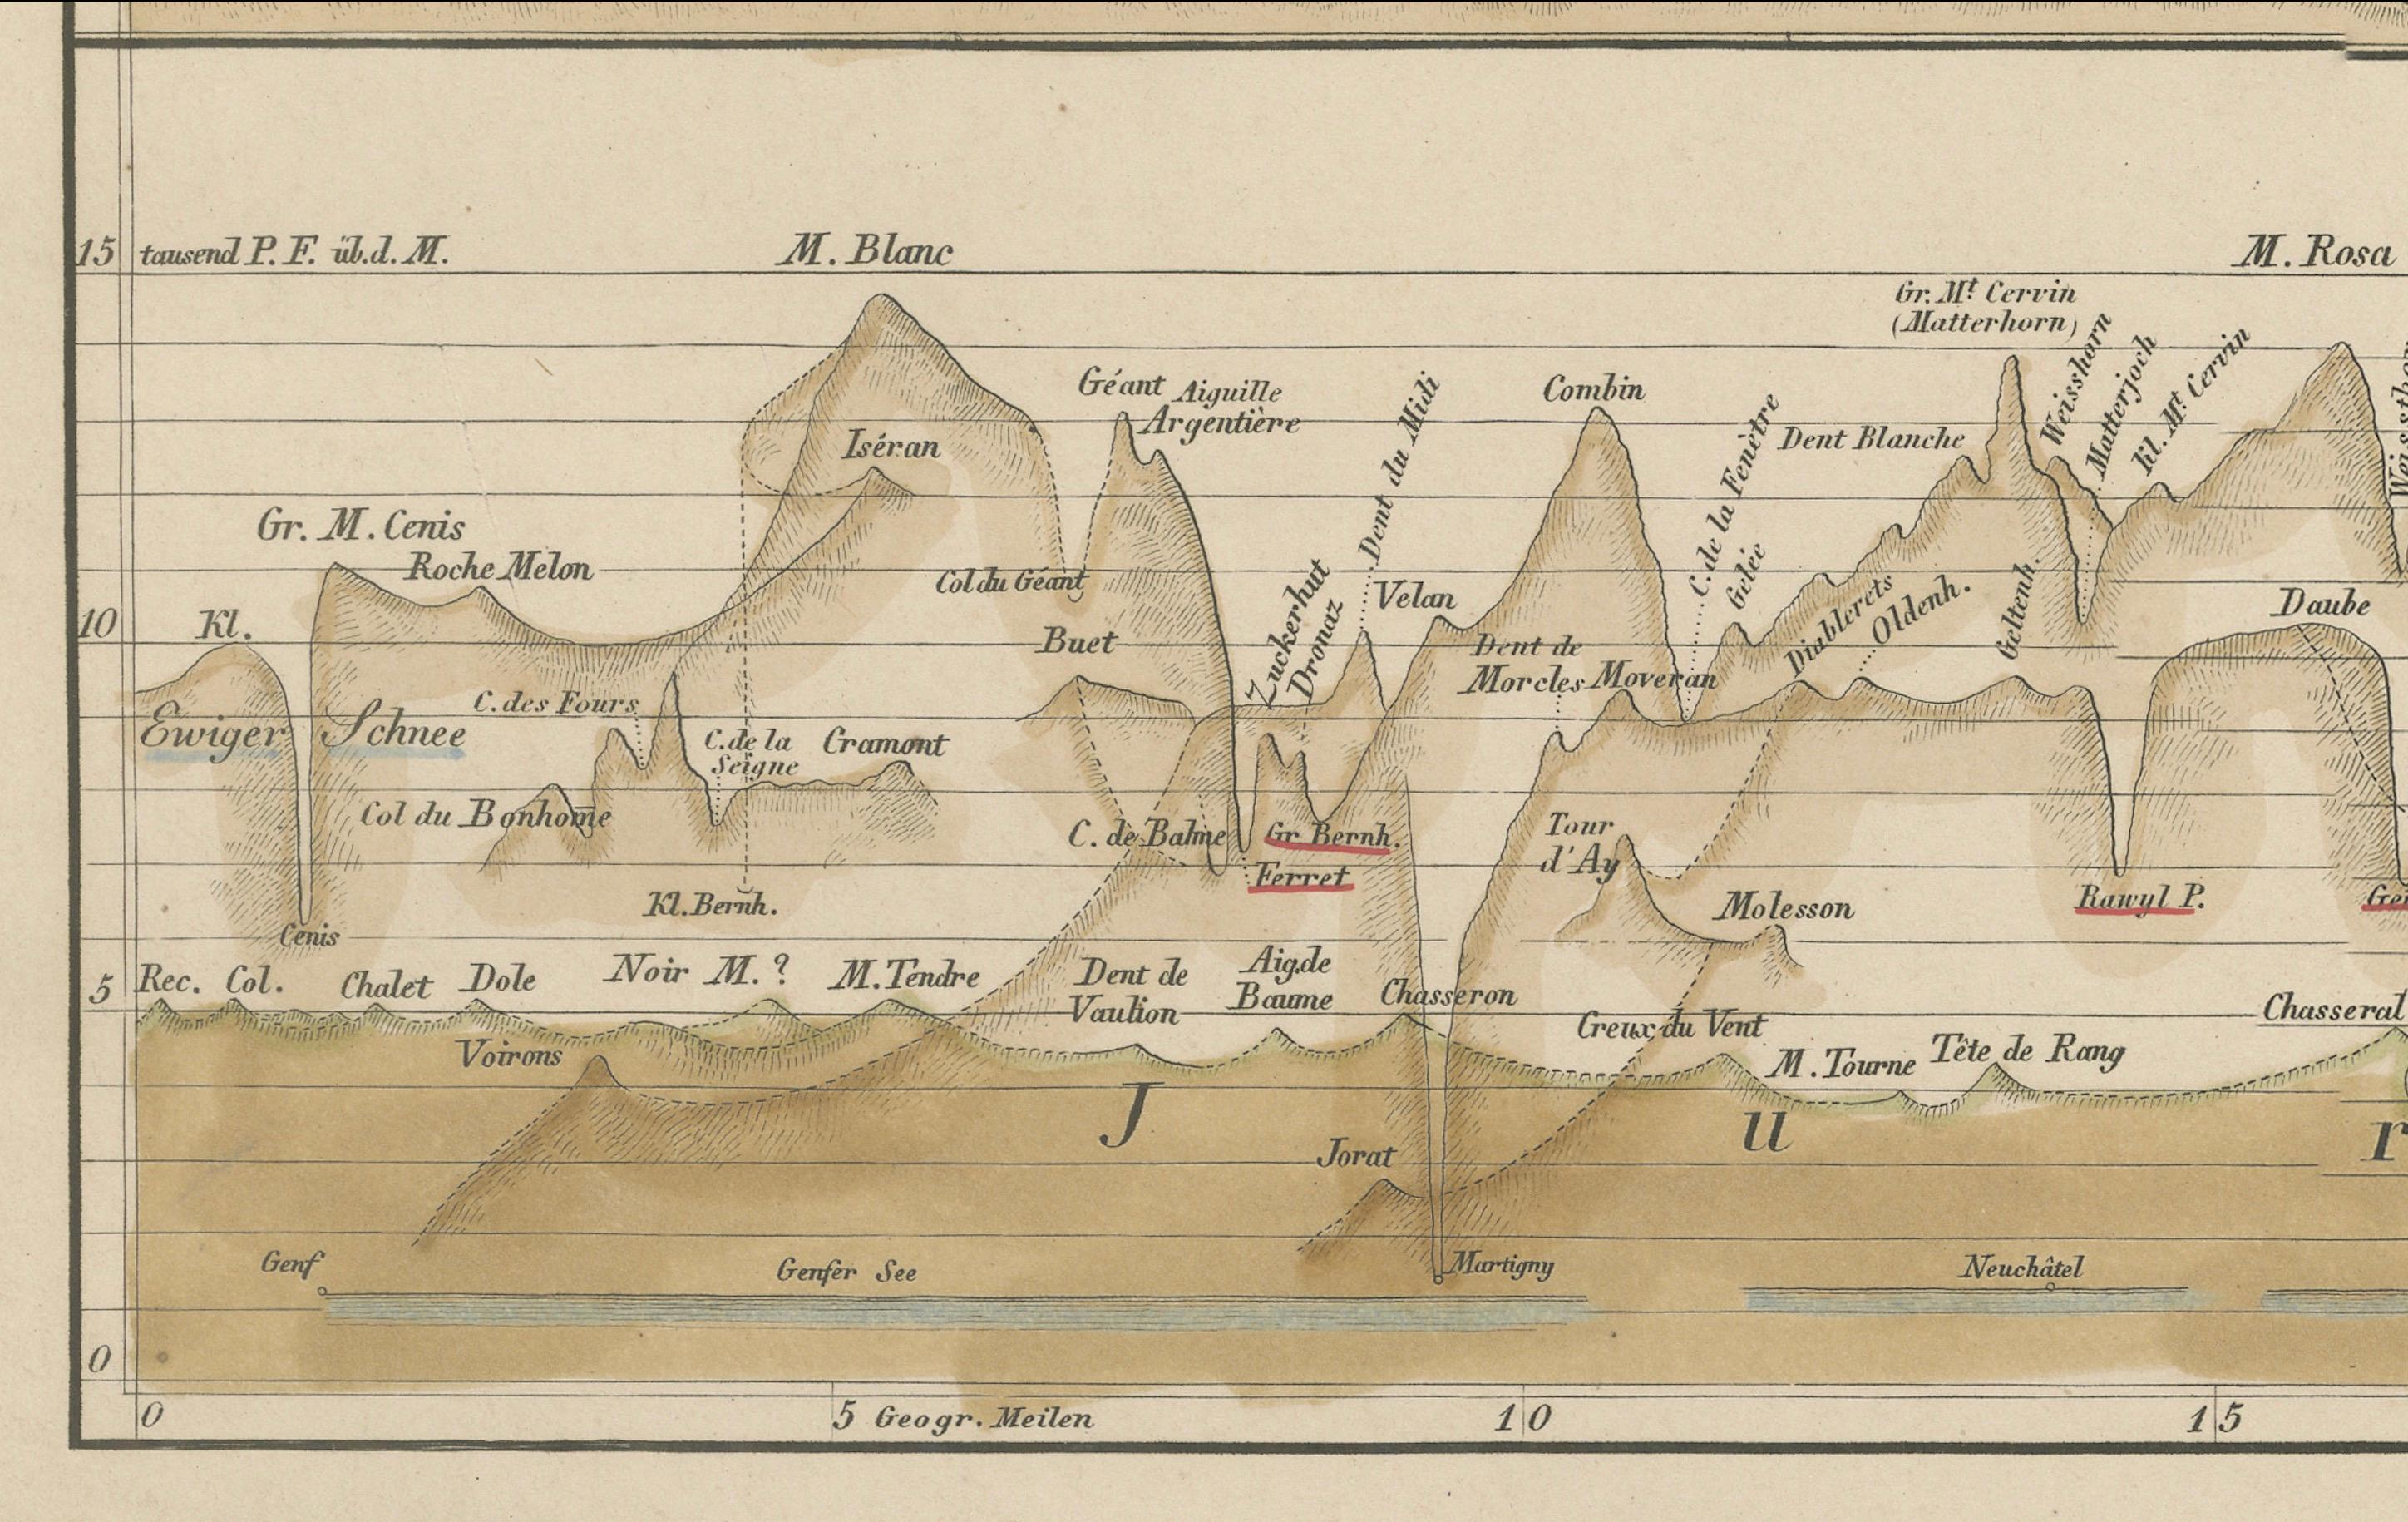 15 tausend P. F. üb. d. M.
M. Blanc
M. Rosa
Gr. Mt. Cervin
(Matterhorn)
Weisshorn
Matterjoch
Kl. Mt. Cervin
Géant
Aiguille
Argentière
Dent du Midi
Combin
C. de la Fenêtre
Gelée
Dent Blanche
Iséran
Gr. M. Cenis
Roche Melon
Col du Géant
Zuckerhut
Dronaz
Velan
Diablerets
Oldenh.
Geltenh.
Daube
10
Kl.
Buet
Dent de
Morcles
Moveran
Ewiger Schnee
C. des Fours
C. de la
Seigne
Cramont
Col du Bonhom̄e
C. de Balme
Gr Bernh.
Ferret
Tour
d'Ay
Kl. Bernh.
Molesson
Rawyl P.
Cenis
5
Rec.
Col.
Chalet
Dole
Noir M. ?
M. Tendre
Dent de
Vaulion
Aig. de
Baume
Chasseron
Chasseral
Creux du Vent
Voirons
M. Tourne
Tête de Rang
J u r
Jorat
Genf
Genfer See
Martigny
Neuchâtel
0
0
5 Geogr. Meilen
10
15